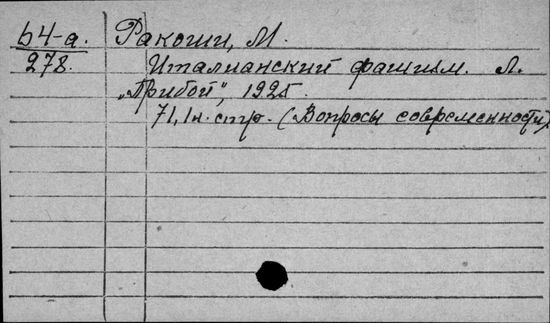 б4-а. Ракоши, М.
278. Италианский фашизм. Л.
„Прибой", 1925.
71, 1н. стр. (Вопросы современности)